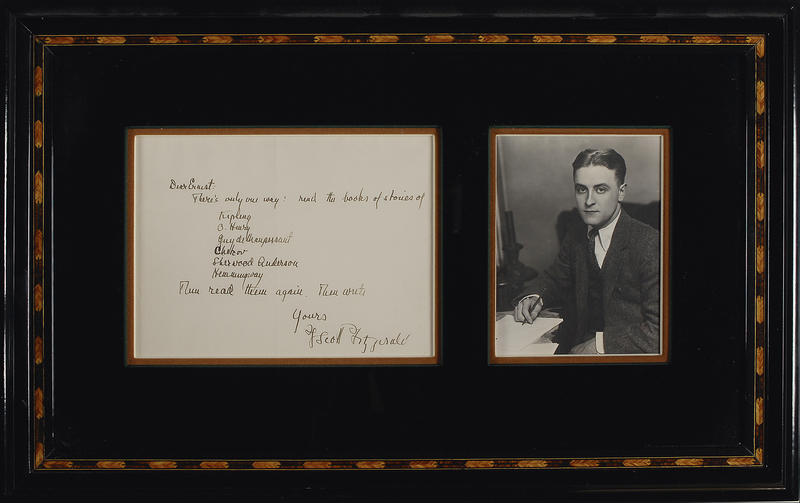 Dear Ernest:
There's only one way: read the books of stories of
Kipling
O. Henry
Guy de Maupassant
Chekov
Sherwood Anderson
Hemmingway
Then read them again. Then write
Yours
F Scott Fitzgerald